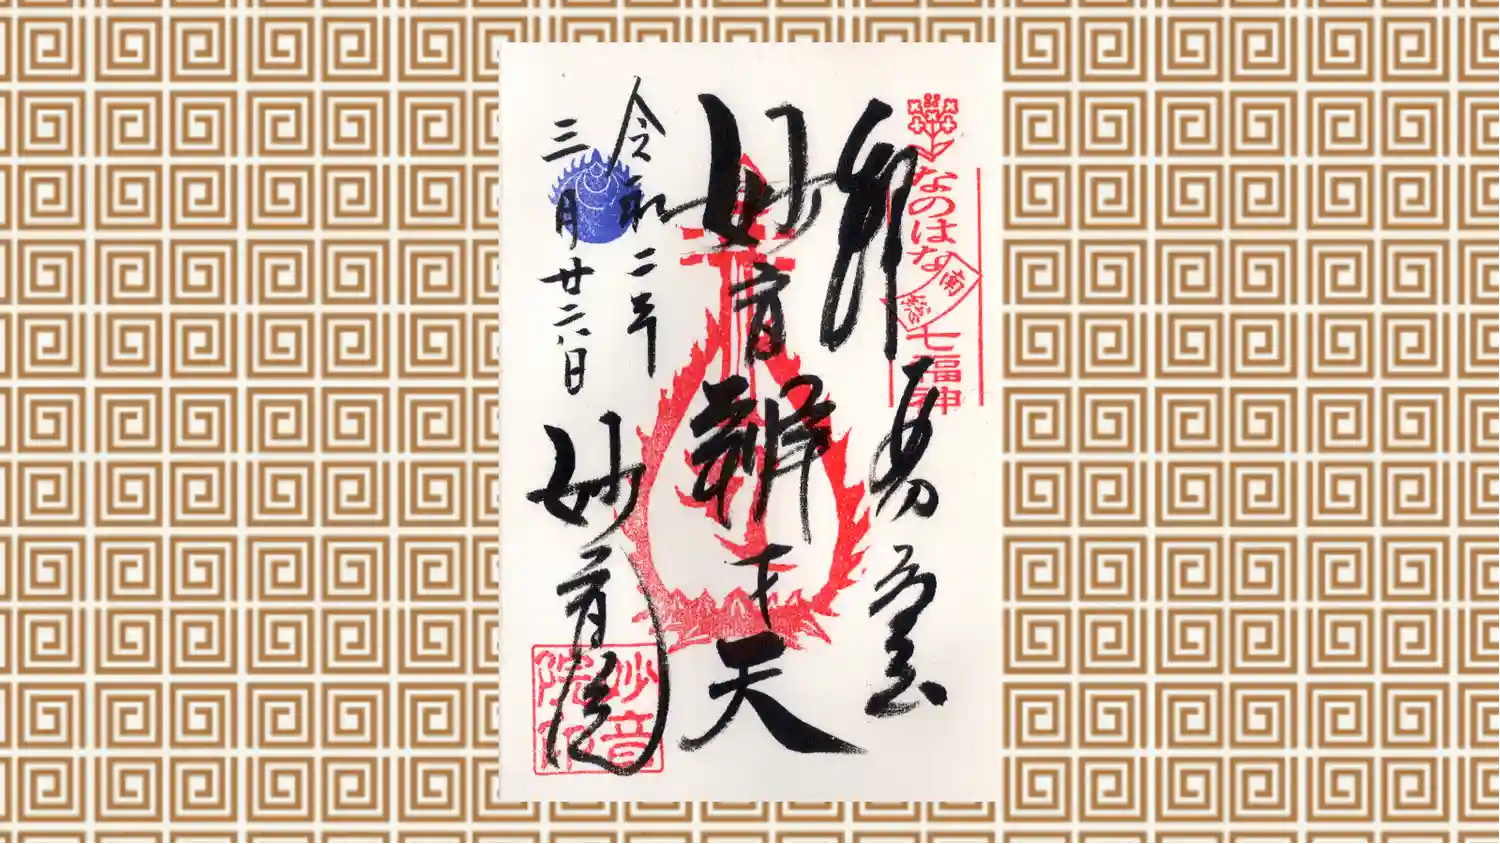 なのはな
南総
七福神
妙音辨才天
令和二年
三月廿六日
妙音院
妙音
院印